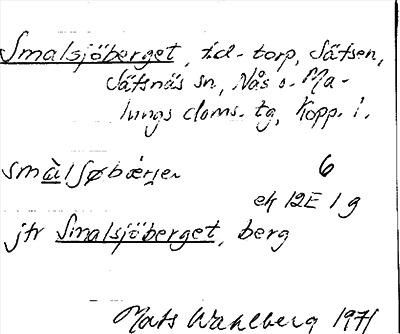 Smalsjöberget, f.d. torp, Sätsen,
Säfsnäs sn, Nås o. Ma-
lungs doms. tg, Kopp. l.
smàlſøbærjer 6
ek 12E 1g
jfr Smalsjöberget, berg
Mats Wahlberg 1971